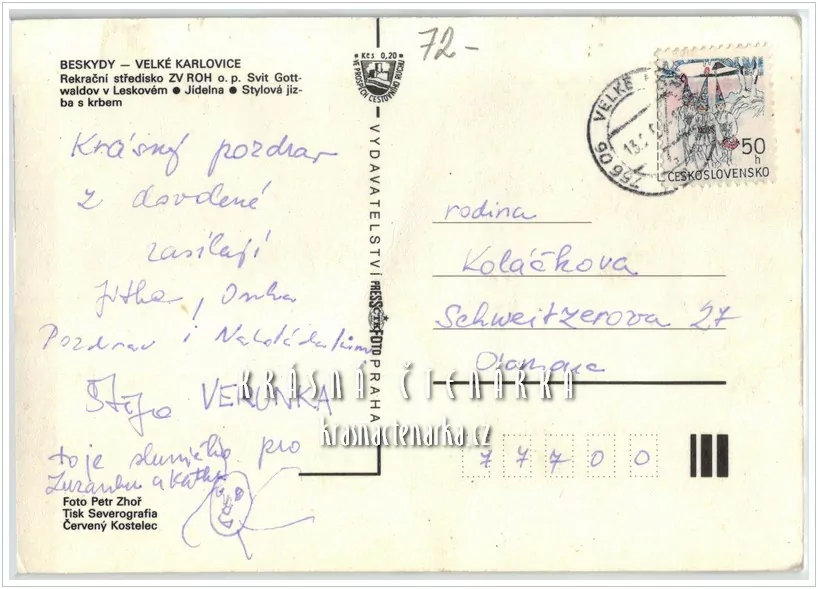 BESKYDY — VELKÉ KARLOVICE
Rekrační středisko ZV ROH o. p. Svit Gott-
waldov v Leskovém ● Jídelna ● Stylová jiz-
ba s krbem
Krásný pozdrav
z dovolené
zasílají
Jitka,
Pozdrav i
VERUNKA
to je sluníčko pro
Zuzanku a Katku
Foto Petr Zhoř
Tisk Severografia
Červený Kostelec
Kčs 0,20
VE PROSPĚCH CESTOVNÍHO RUCHU
VYDAVATELSTVÍ PRESSFOTO PRAHA
ČTK
72-
756 06 VELKÉ
13.
50
h
ČESKOSLOVENSKO
rodina
Koláčkova
Schweitzerova 27
Olomouc
77700
KRÁSNÁ ČTENÁRKA
krasnactenarka.cz